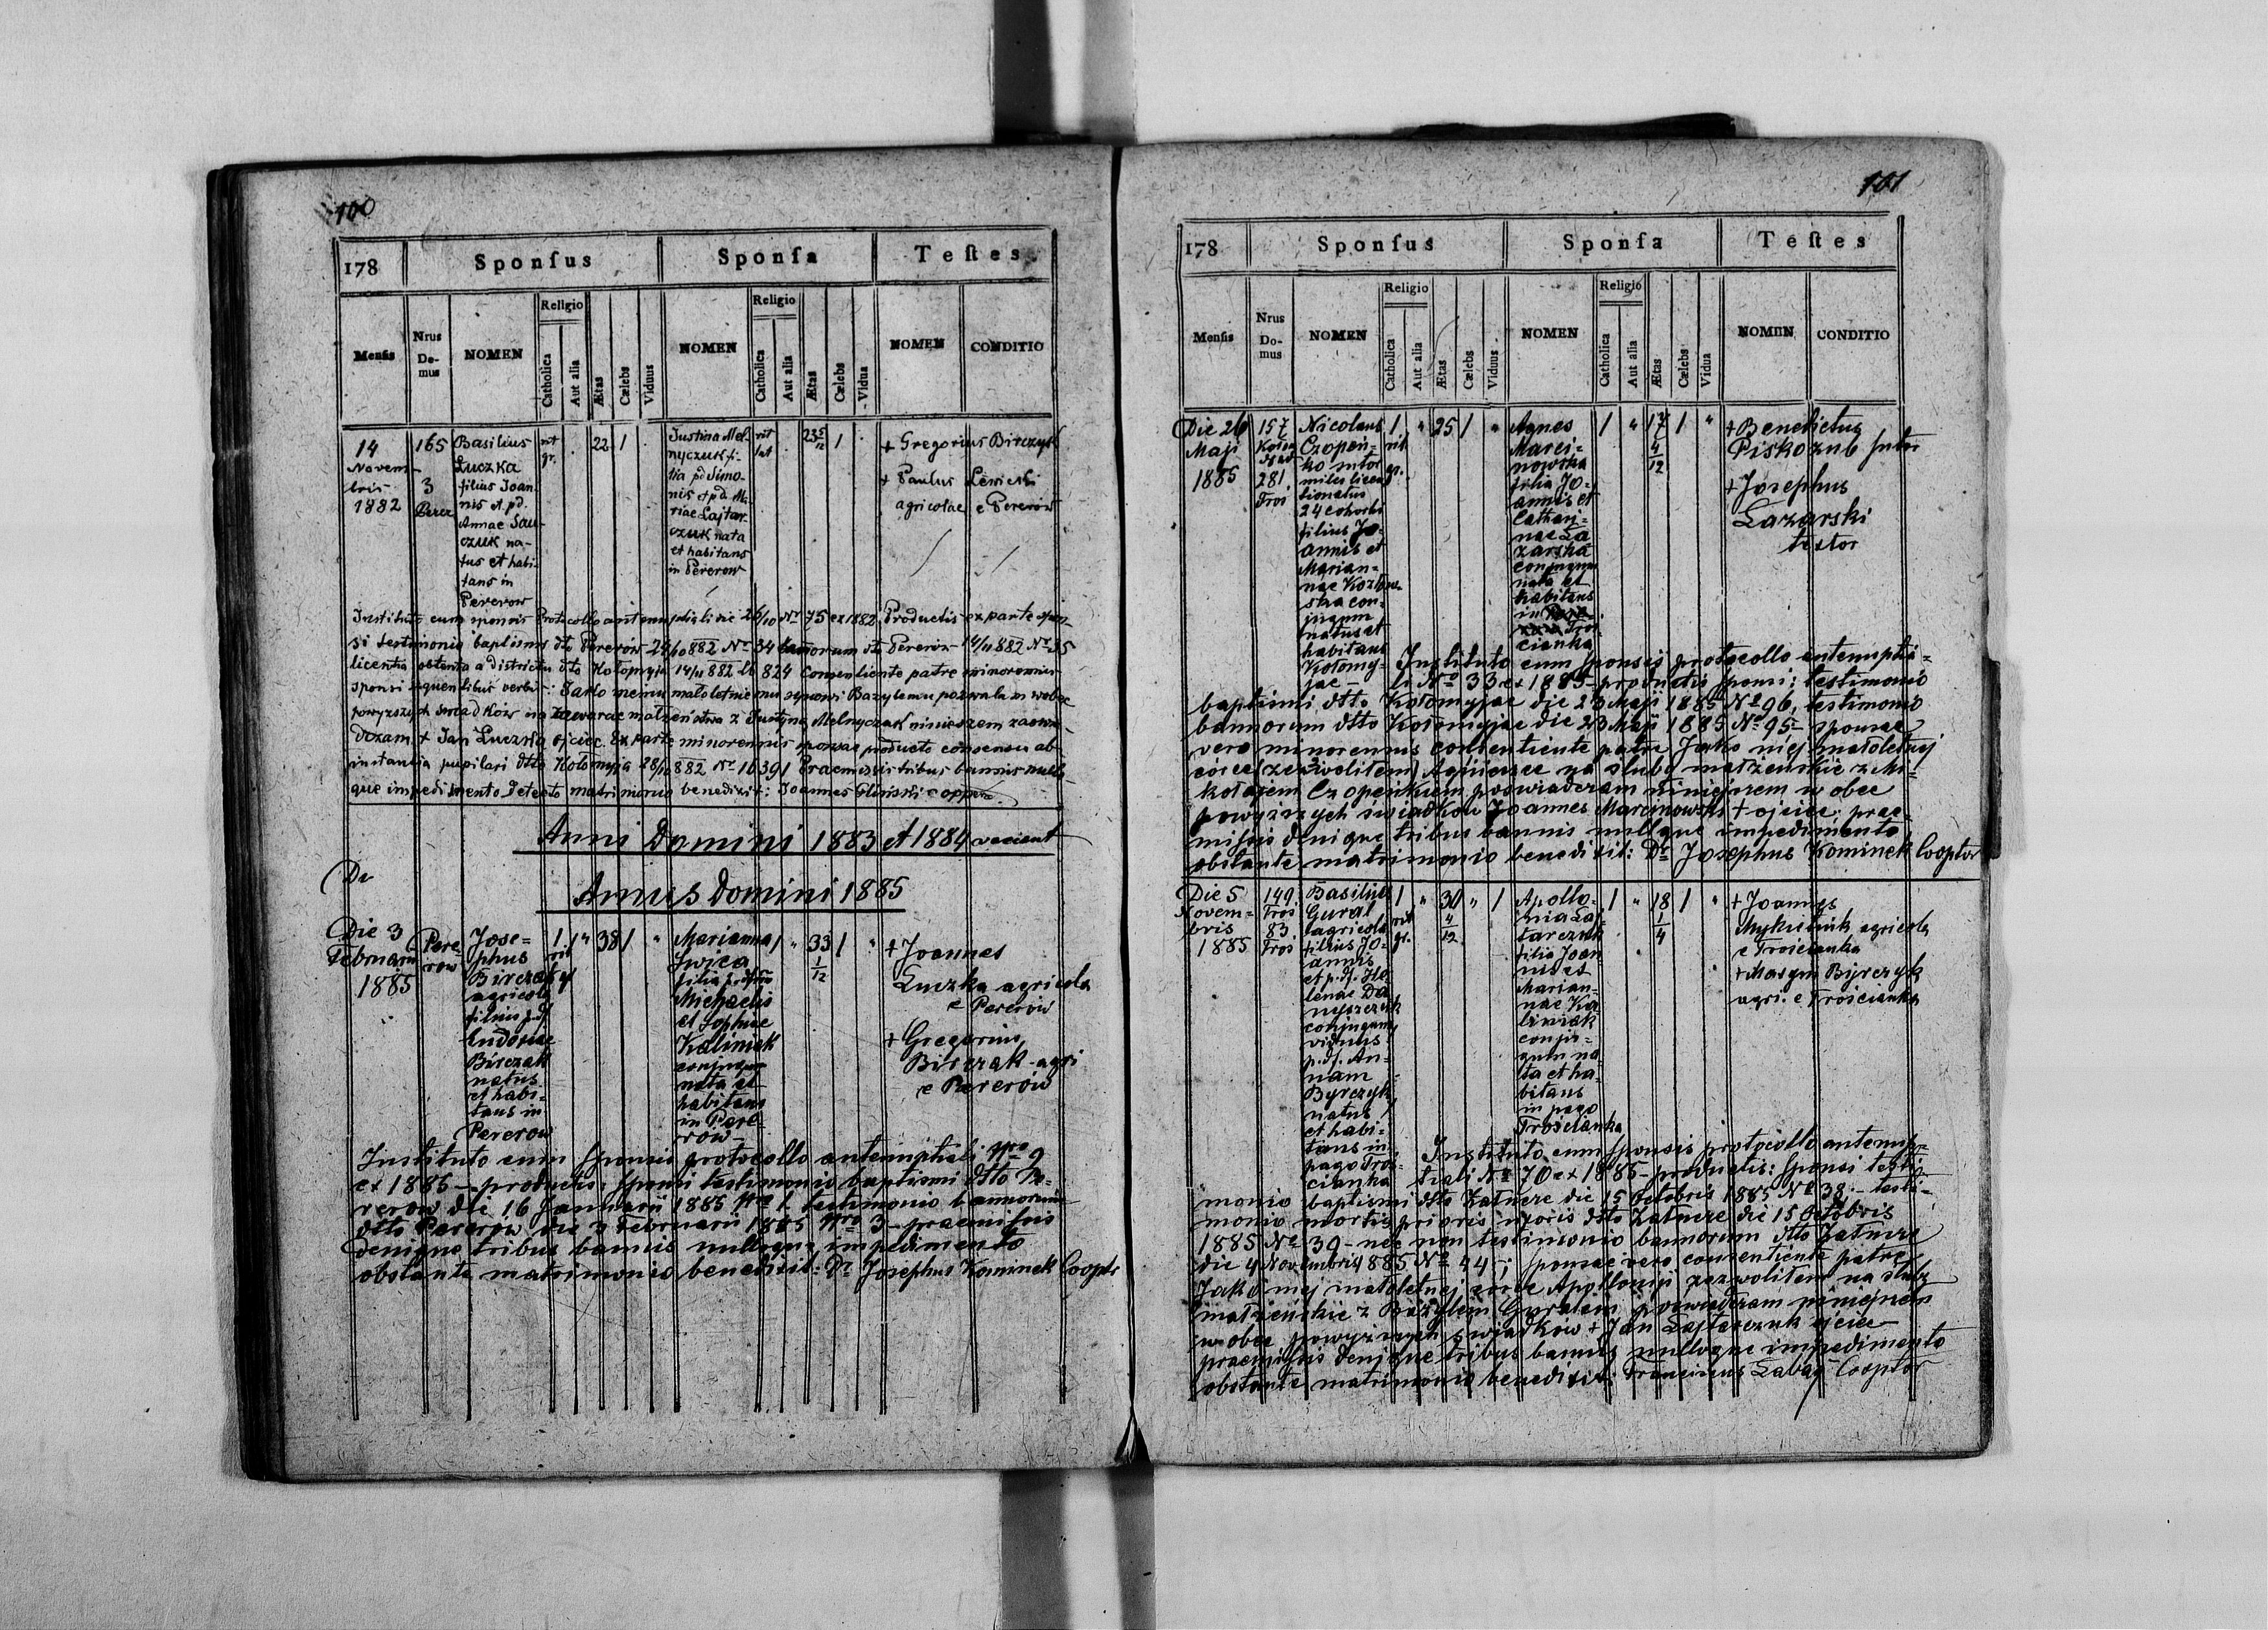 100
178
Sponſus
Sponſa
Teſtes
Menſis
Nrus Domus
NOMEN
Religio
Catholica
Aut alia
Ætas
Cælebs
Viduus
NOMEN
Religio
Catholica
Aut alia
Ætas
Cælebs
Vidua
NOMEN
CONDITIO
14
Novem-
bris
1882
165
3
Perer
Basilius
Łuczka
filius Joan
nis et pd.
Annae Sau-
czuk na-
tus et habi-
tans in
Pererow
rit
gr.
22
1
Justina Mel-
nyczuk fi-
lia pd Simo-
nis et pd. Ma-
riae Łajtar-
czuk nata
et habitans
in Pererow
rit
lat
23 5/12
1
+ Gregorius Birczyk
+ Paulus Lewicki
agricolae e Pererów
Instituto cum sponsis Protocollo antenuptiali die 26/10 Nr 75 ex 1882. Productis ex parte spon-
si testimonio baptismi dto Pererów 24/10 882 Nr 34 bannorum dto Pererów 14/11 882 Nr 35
licentia obtenta a districtu dto Kołomyja 14/11 882 lb 824 Consentiente patre minorennis
sponsi sequentibus verbis: Jako memu małoletniemu synowi Bazylemu pozwalam wobec
powyższych świadków na zawarcie małżeństwa z Justyną Melnyczuk niniejszem zaświa-
dczam + Jan Łuczka ojciec. Ex parte minorennis sponsae producto consensu ab
instantia pupilari dtto Kołomyja 28/10 882 Nr. 16391 Praemissis tribus bannis nullo-
que impedimento detecto matrimonio benedixit: Joannes Gliński cooppr.
Anni Domini 1883 et 1884 vacient
Annus Domini 1885
Die 3
Februarii
1885
Pere-
row
Jose-
phus
Birczak
agricola
filius p.d.
Eudoxiae
Birczak
natus
et habi-
tans in
Pererow
1
rit
gr
"
38
1
"
Marianna
Swica
filia pdftor
Michaelis
et Sophiae
Kaliniak
conjugum
nata et
habitans
in Pere-
row
1
"
33
1/12
1
"
+ Joannes
Łuczka agricola
e Pererów
+ Gregorius
Birczak - agri
e Pererów
Instituto cum sponsis protocollo antenuptiali Nro 9
ex 1885 - productis: sponsi testimonio baptismi dtto Pe-
rerow die 16 Januarii 1885 Nro 1. testimonio bannorum
dtto Pererow die 3 Februarii 1885 Nro 3 - praemissis
denique tribus bannis nulloque impedimento
obstante matrimonio benedixit: Dr Josephus Kominek Cooptr
101
178
Sponſus
Sponſa
Teſtes
Menſis
Nrus Domus
NOMEN
Religio
Catholica
Aut alia
Ætas
Cælebs
Viduus
NOMEN
Religio
Catholica
Aut alia
Ætas
Cælebs
Vidua
NOMEN
CONDITIO
Die 26
Maji
1885
157
281
Tros
Nicolaus
Czopeń-
ko sutor
miles licen
tionatus
24 cohortis
filius Jo-
annis et
Marian-
nae Kozłow-
ska con-
jugum
natus et
habitans
Kołomy-
jae
1
rit.
gr.
"
25
1
"
Agnes
Marci-
nowska
filia Jo-
annis et
Cathari-
nae Ła
zarska
conjugum
nata et
habitans
in
Tros-
cianka
1
"
17
4/12
1
"
+ Benedictus
Piskozub sutor
+ Josephus
Łazarski
testor
Instituto cum sponsis protocollo antenuptia-
li No 33 ex 1885 - productis sponsi: testimonio
baptismi dtto Kołomyjae die 23 Maji 1885 No 96, testimonio
bannorum dtto Kołomyjae die 23 Maji 1885 No 95 - sponsae
vero minorennis consentiente patre Jako mej małoletniej
córce (zezwoliłem) Agnieszce na śluby małżeńskie z Mi-
kołajem Czopeńkiem poświadczam niniejszem w obec
powyższych świadków Joannes Marcinowski + ojciec: prae-
missis denique tribus bannis nulloque impedimento
obstante matrimonio benedixit: Dr Josephus Kominek Cooptor
Die 5
Novem-
bris
1885
149.
Tros
83.
Tros
Basilius
Gural
agricola
filius Jo-
annis
et p.d. He
lenae Da
nyszczuk
conjugum
viduus
p.d. An-
nam
Byrczyk
natus
et habi-
tans in
pago Tros-
cianka
1
rit
gr.
"
30
4/12
"
1
Apollo-
nia Łaj-
tarczuk
filia Joan
nis et
Marian-
nae Ka
liniak
conju-
gum na
ta et ha-
bitans
in pago
Trościanka
1
"
18
1/4
1
"
+ Joannes
Mykietiuk agricola
e Trościanka
+ Maxym Byrczyk
agri. e Trościanka
Instituto cum sponsis protocollo antenup-
tiali No 70 ex 1885 - productis: sponsi testi-
monio baptismi dtto Zatucze die 15 Octobris 1885 No 38 - testi-
monio mortis prioris uxoris dtto Zatucze die 15 Octobris
1885 No 39 - nec non testimonio bannorum dtto Zatucze
die 4 Novembris 1885 No 44; sponsae vero consentiente patre
Jako mej małoletniej córce Apollonji zezwoliłem na śluby
małżeńskie z Bazylem Guralem poświadczam niniejszem
w obec powyższych świadków + Jan Łajtarczuk ojciec
praemissis denique tribus bannis nulloque impedimento
obstante matrimonio benedixit: Franciscus Łabay Cooptor